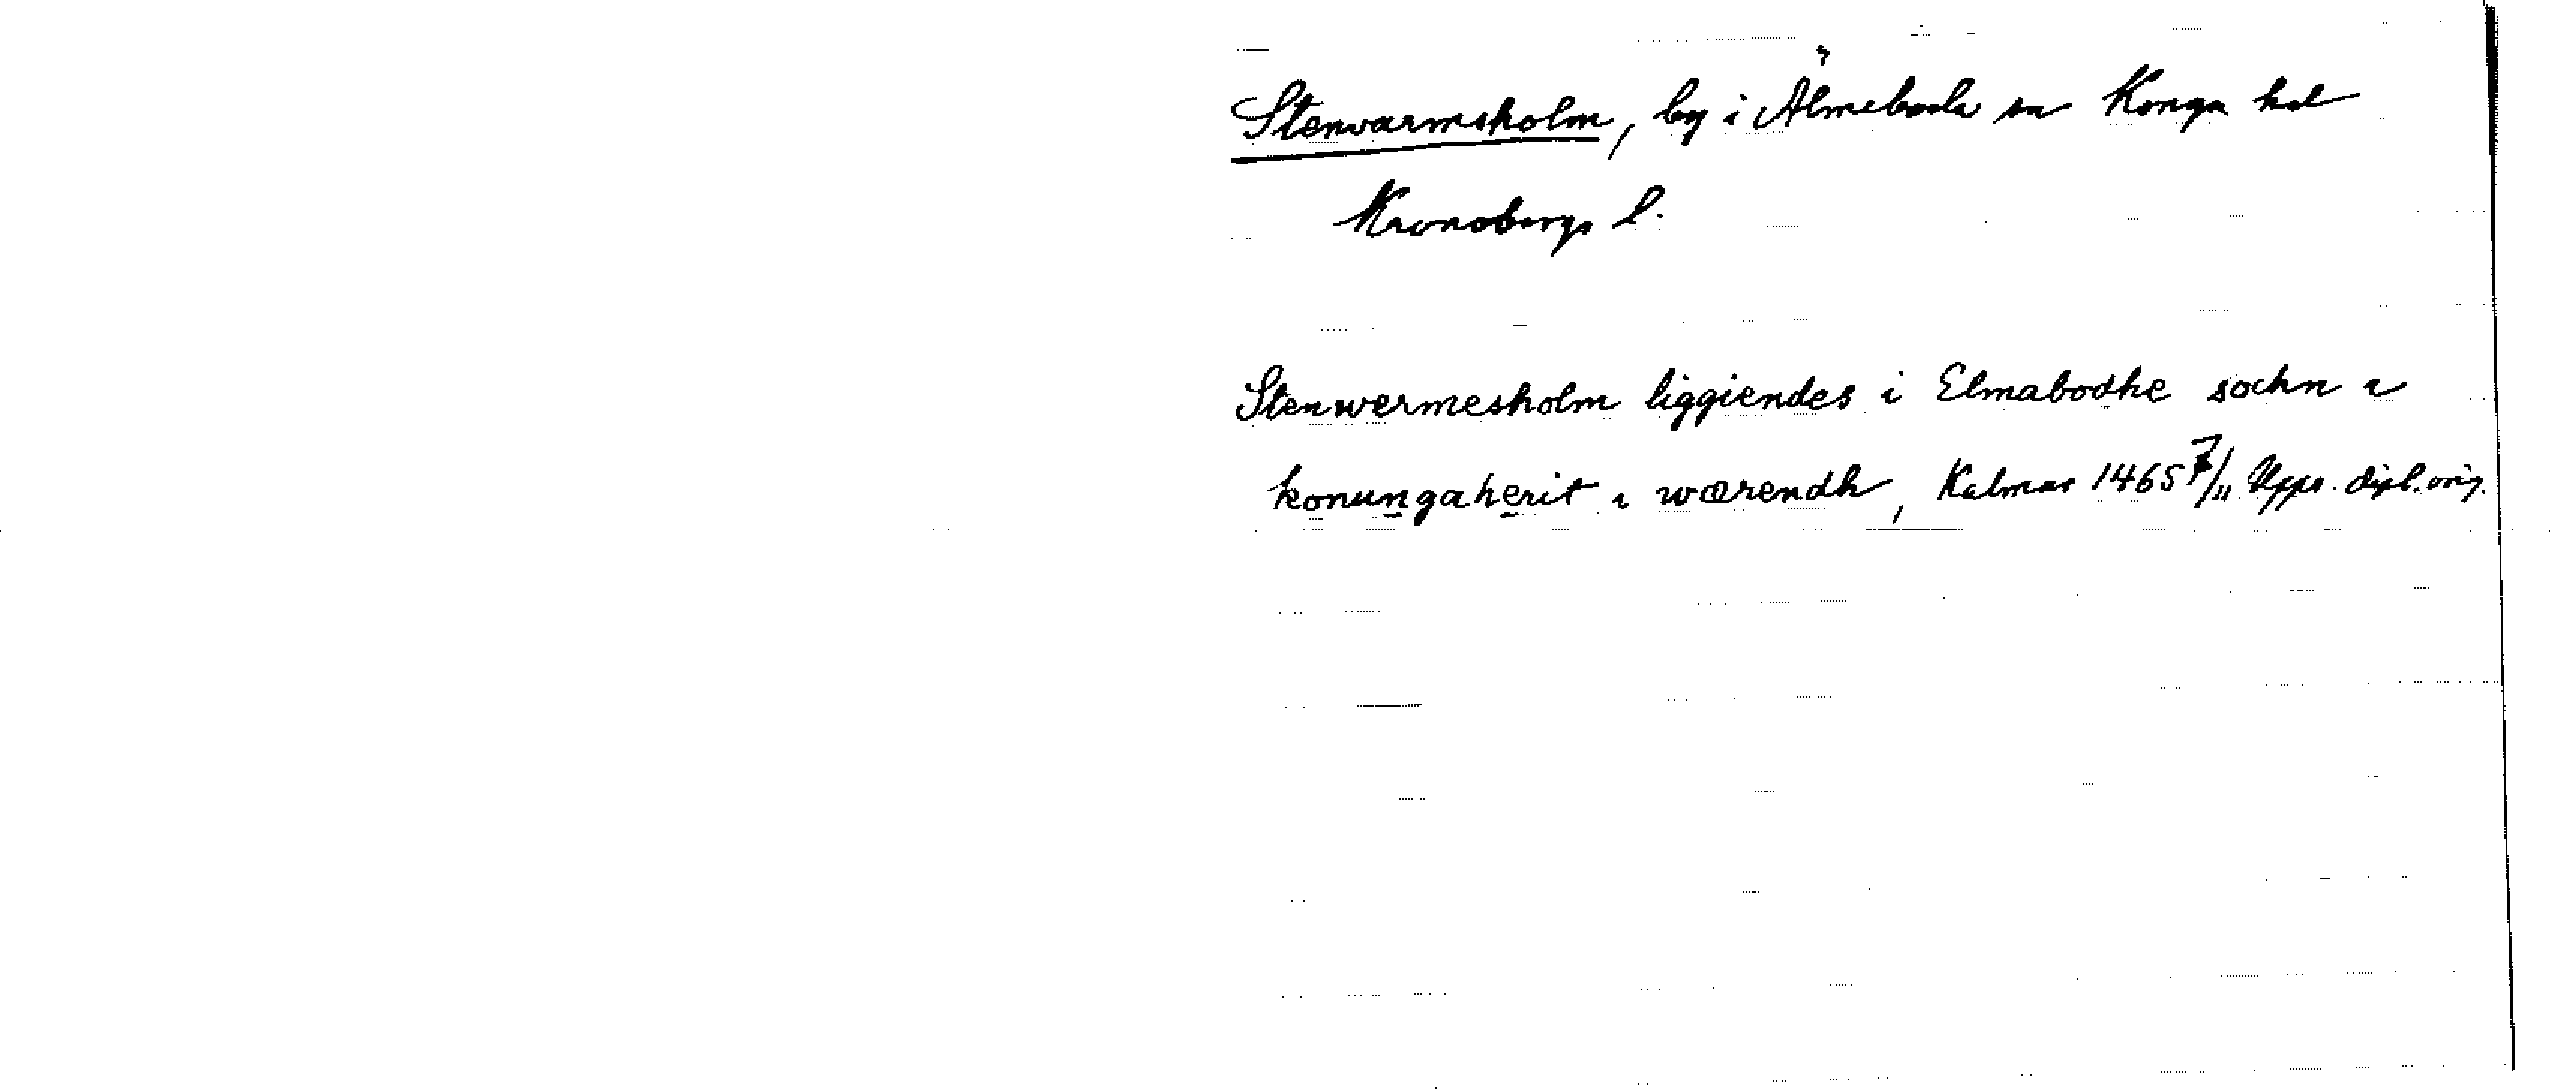 Stenvarmsholm, by i Älmeboda sn Konga hd
Kronobergs l.
Stenwermesholm liggiendes i Elmabodhe sochn i
konungaherit i wærendh, Kalmar 1465 7/11 Upps. dipl. orig.